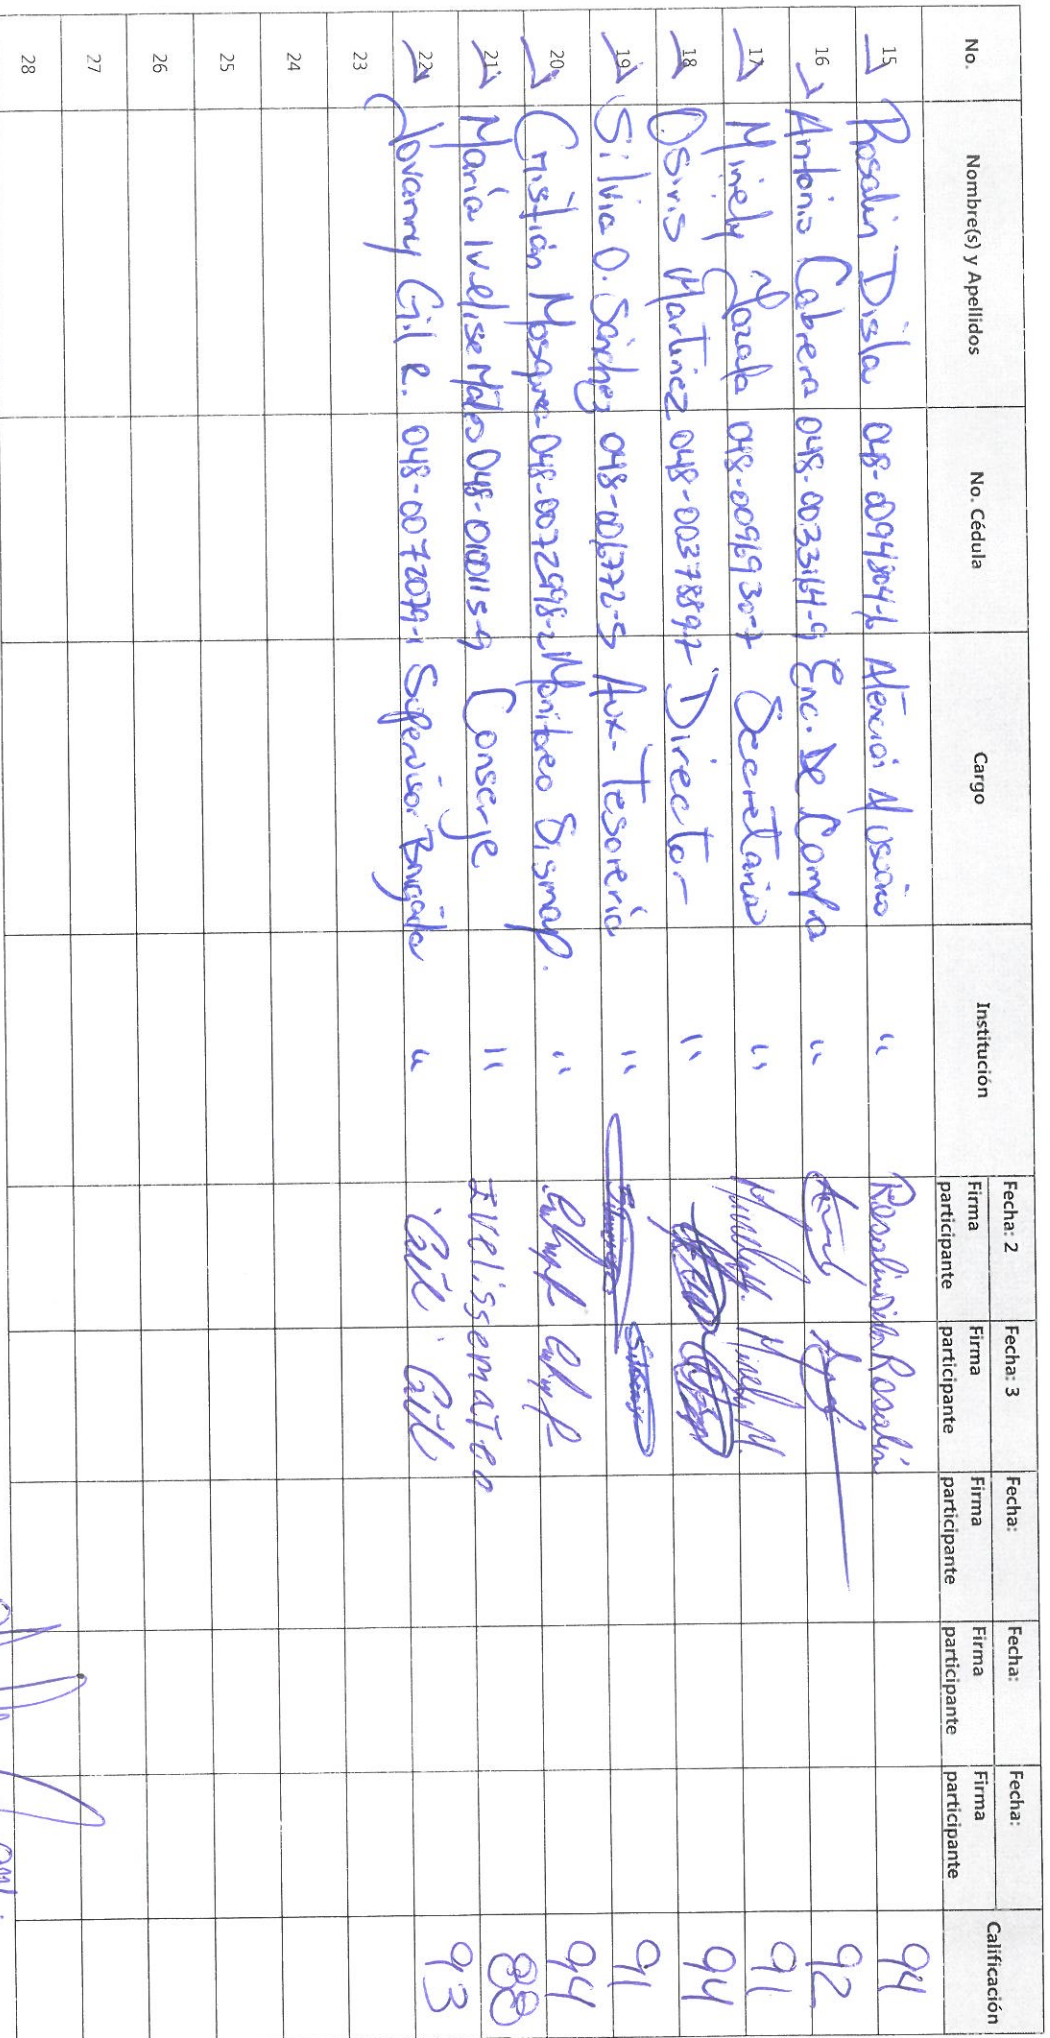 No. Nombre(s) y Apellidos No. Cédula Cargo Institución Fecha: 2 Firma participante Fecha: 3 Firma participante Fecha: Firma participante Fecha: Firma participante Fecha: Firma participante Calificación
15 Rosalin Disla 048-0094804-6 Atención Usuario " Rosalin Disla Rosalin 94
16 Antonio Cabrera 048-0033164-9 Enc. De Compra " 92
17 Miniely 048-0096930-7 Secretaria " 91
18 Osiris Martinez 048-0037889-7 Director " 94
19 Silvia O. Sánchez 048-006772-5 Aux-Tesorería " 91
20 Cristian Mosquea 048-0072998-2 Monitoreo Dismap. " 94
21 María Ivelisse Mateo 048-010011s-9 Conserje " Ivelissemateo 88
22 Jovanny Gil R. 048-0072079-1 Supervisor Brigada " Gil Gil 93
23
24
25
26
27
28